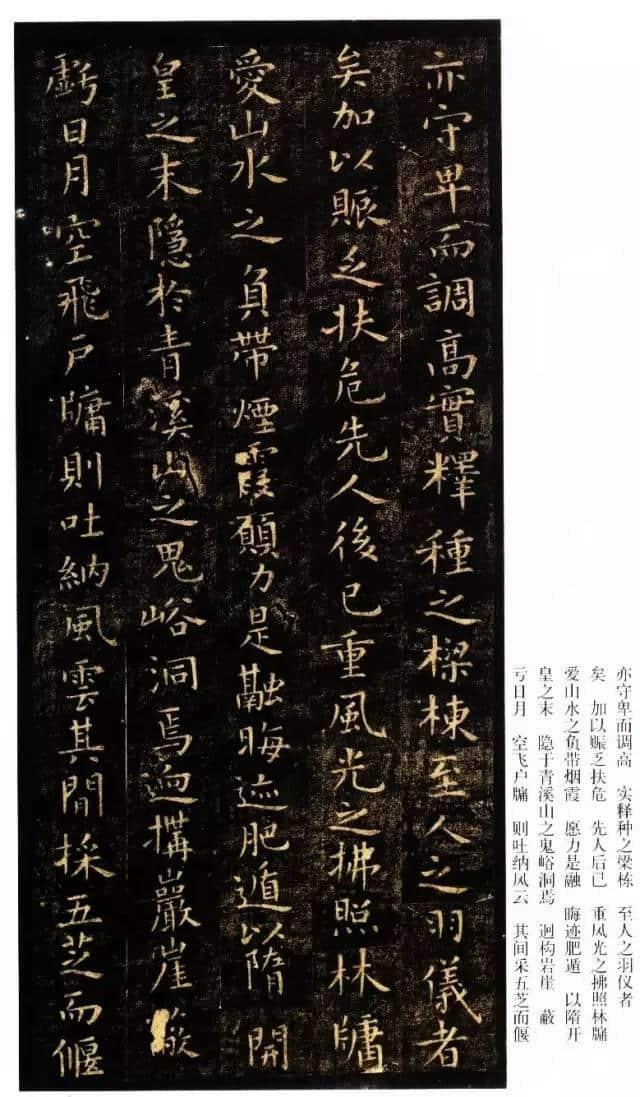 亦守卑而調高實釋種之樑棟至人之羽儀者
矣加以賑乏扶危先人後已重風光之拂照林牖
愛山水之負帶煙霞願力是融晦迹肥遁以隋開
皇之末隱於青溪山之鬼峪洞焉迥搆巖崖蔽
虧日月空飛戶牖則吐納風雲其間採五芝而偃
亦守卑而调高 实释种之梁栋 至人之羽仪者
矣 加以赈乏扶危 先人后已 重风光之拂照林牖
爱山水之负带烟霞 愿力是融 晦迹肥遁 以隋开
皇之末 隐于青溪山之鬼峪洞焉 迥构岩崖 蔽
亏日月 空飞户牖 则吐纳风云 其间采五芝而偃